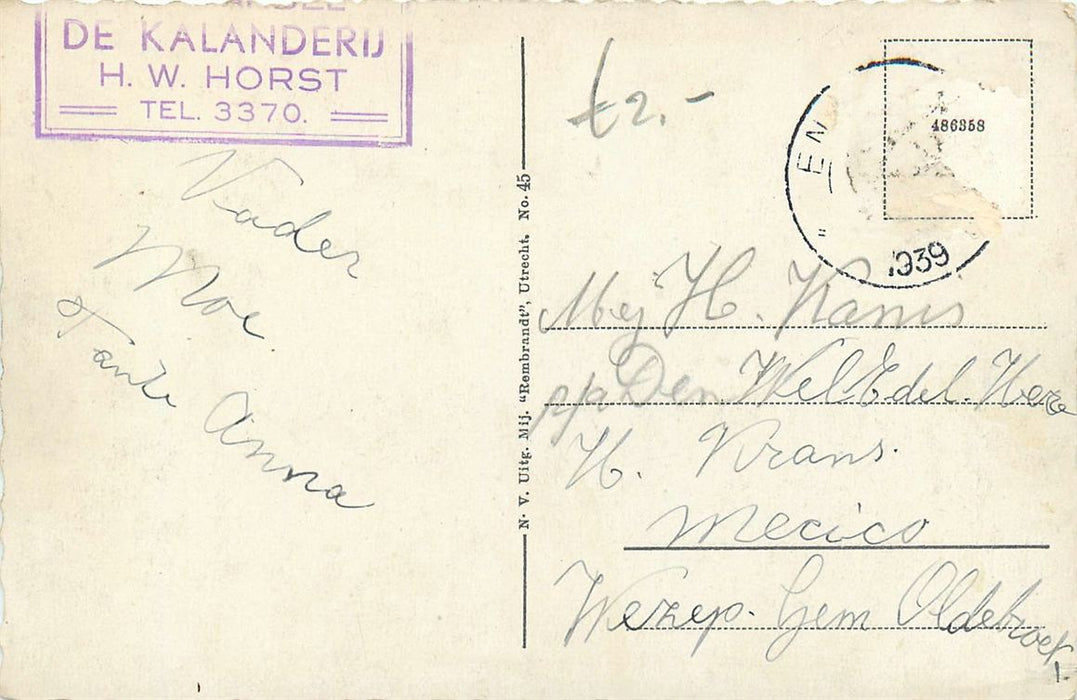 DE KALANDERIJ
H. W. HORST
TEL. 3370.
Vader
Moe
& Tante Anna
N. V. Uitg. Mij. "Rembrandt", Utrecht. No. 45
£2.-
EN
1939
486358
Mej H. Kanis
p/a Den WelEdel. Heer
H. Krans.
Mecico
Wezep. Gem Oldebroek